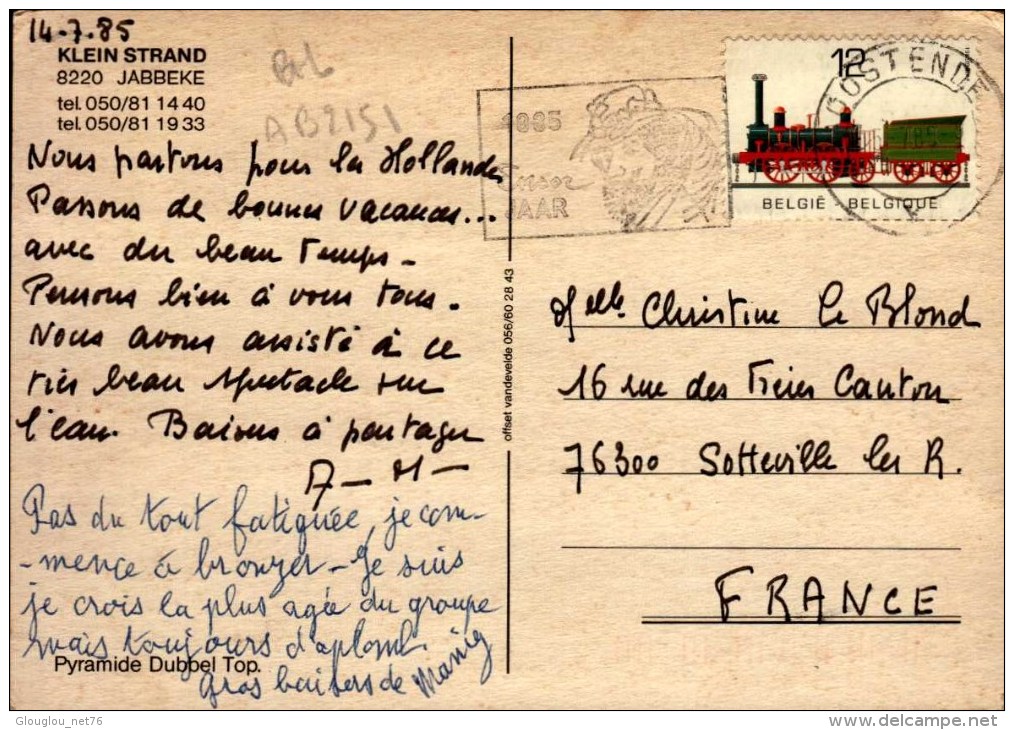 14-7-85
KLEIN STRAND
8220 JABBEKE
tel. 050/81 14 40
tel. 050/81 19 33
AB2151
Nous partons pour la Hollande
Passons de bonnes vacances...
avec du beau temps -
Pensons bien à vous tous -
Nous avons assisté à ce
très beau spectacle sur
l'eau. Baisers à partager
A - M -
Pas du tout fatiguée, je com-
-mence à bronzer - Je suis
je crois la plus agée du groupe
mais toujours d'aplomb.
Gros baisers de
Pyramide Dubbel Top.
offset vandevelde 056/60 28 43
1885
Ensor
JAAR
12
OOSTENDE
BELGIË BELGIQUE
Melle Christine Le Blond
16 rue des Frères Canton
76300 Sotteville les R.
FRANCE
Glouglou_net76
delcampe.net